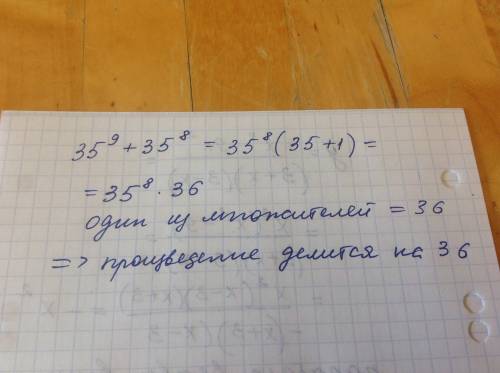 35⁹ + 35⁸ = 35⁸ (35 + 1) =
= 35⁸ · 36
один из множителей = 36
=> произведение делится на 36